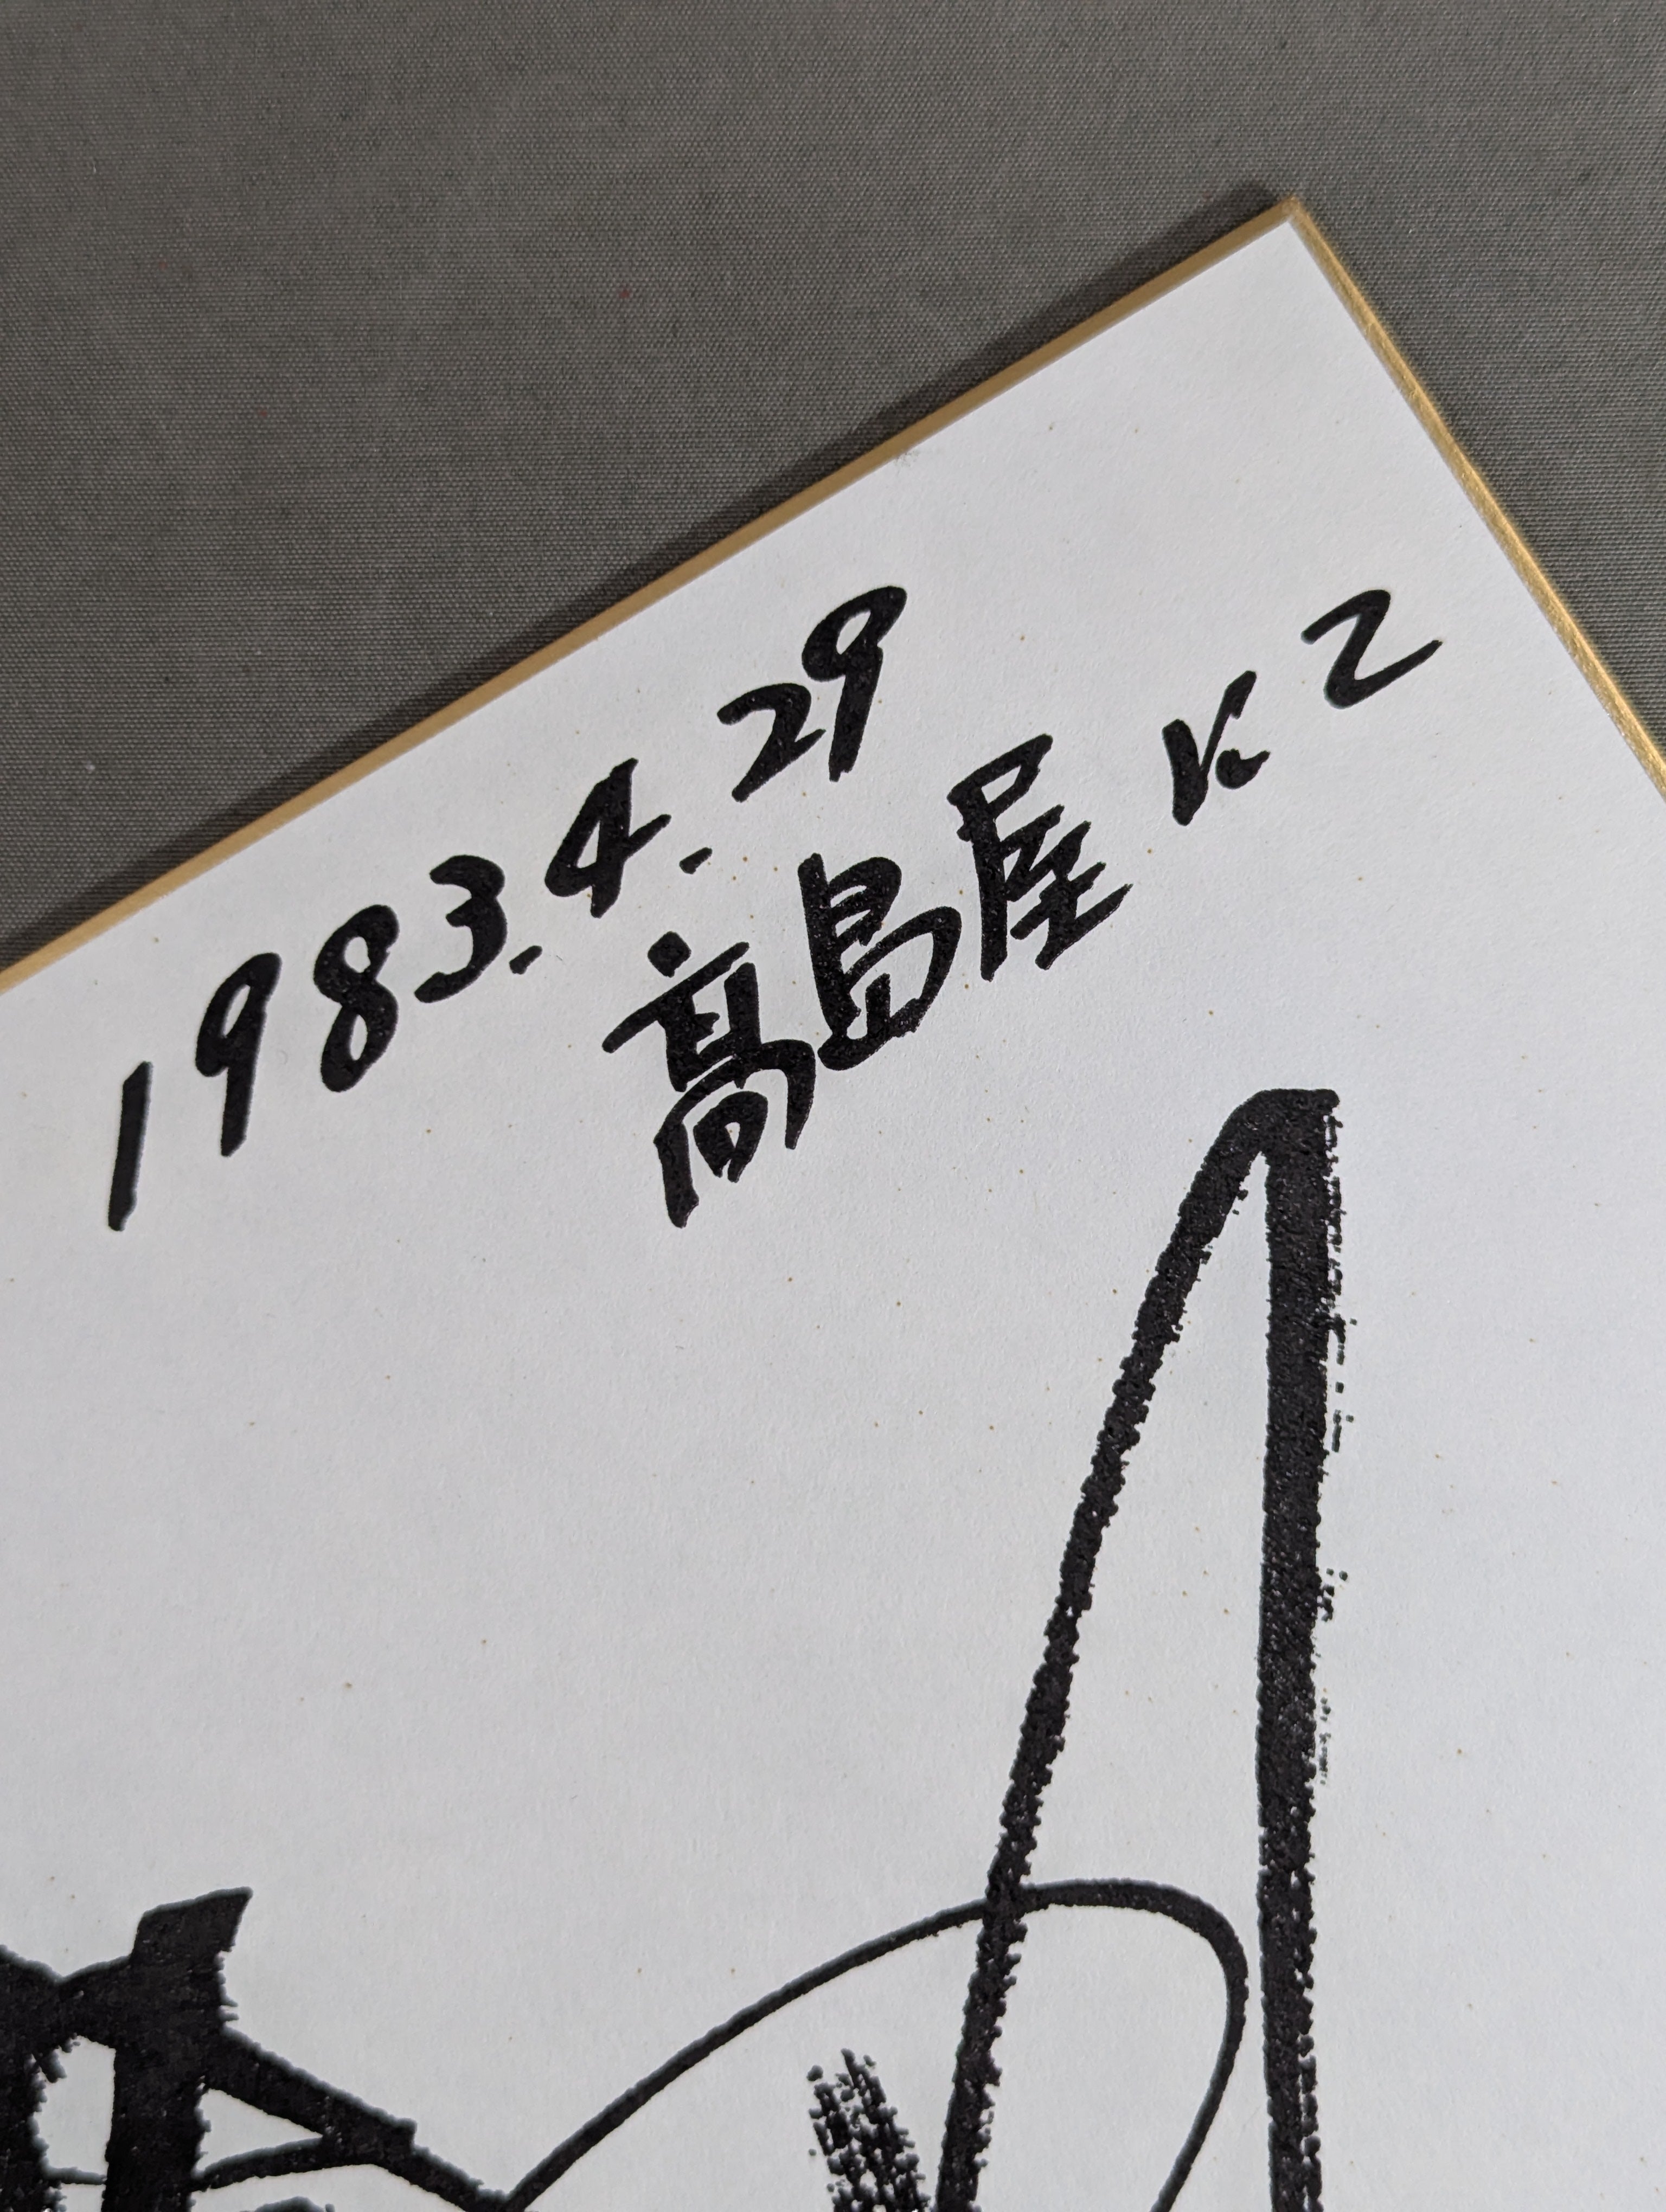 1983.4.29
高島屋にて